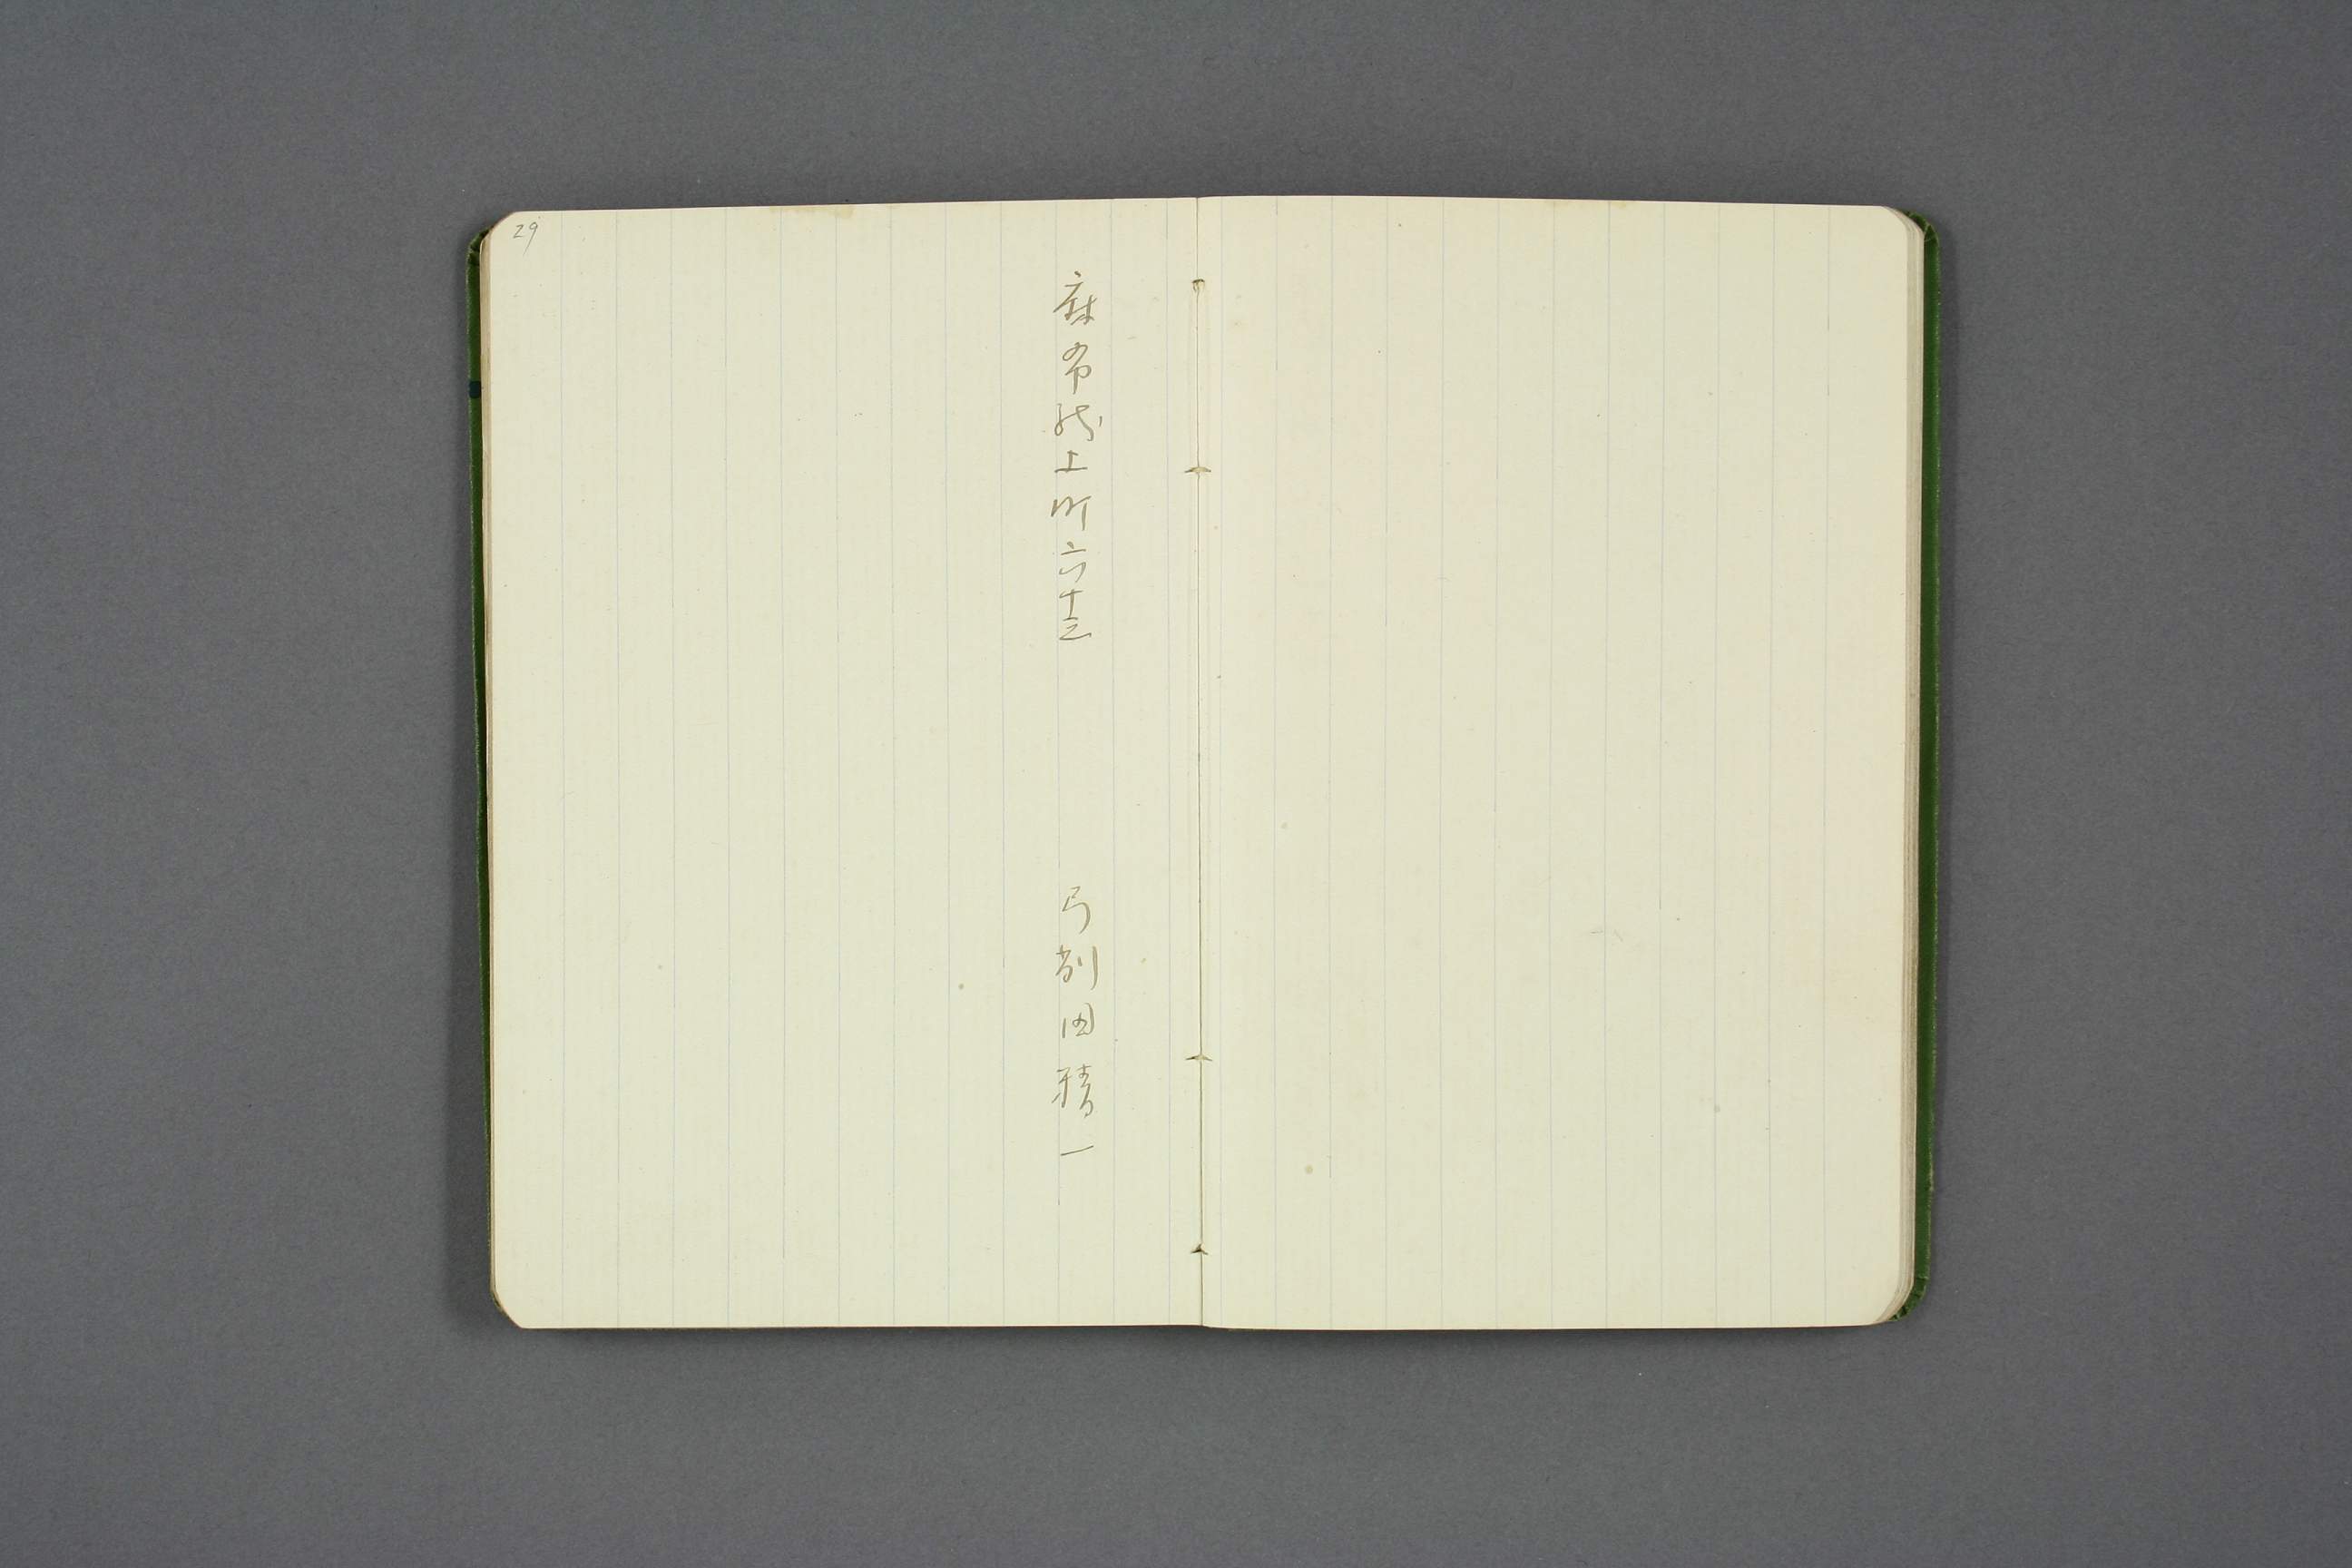 麻布龍土町六十三 弓削田精一
29